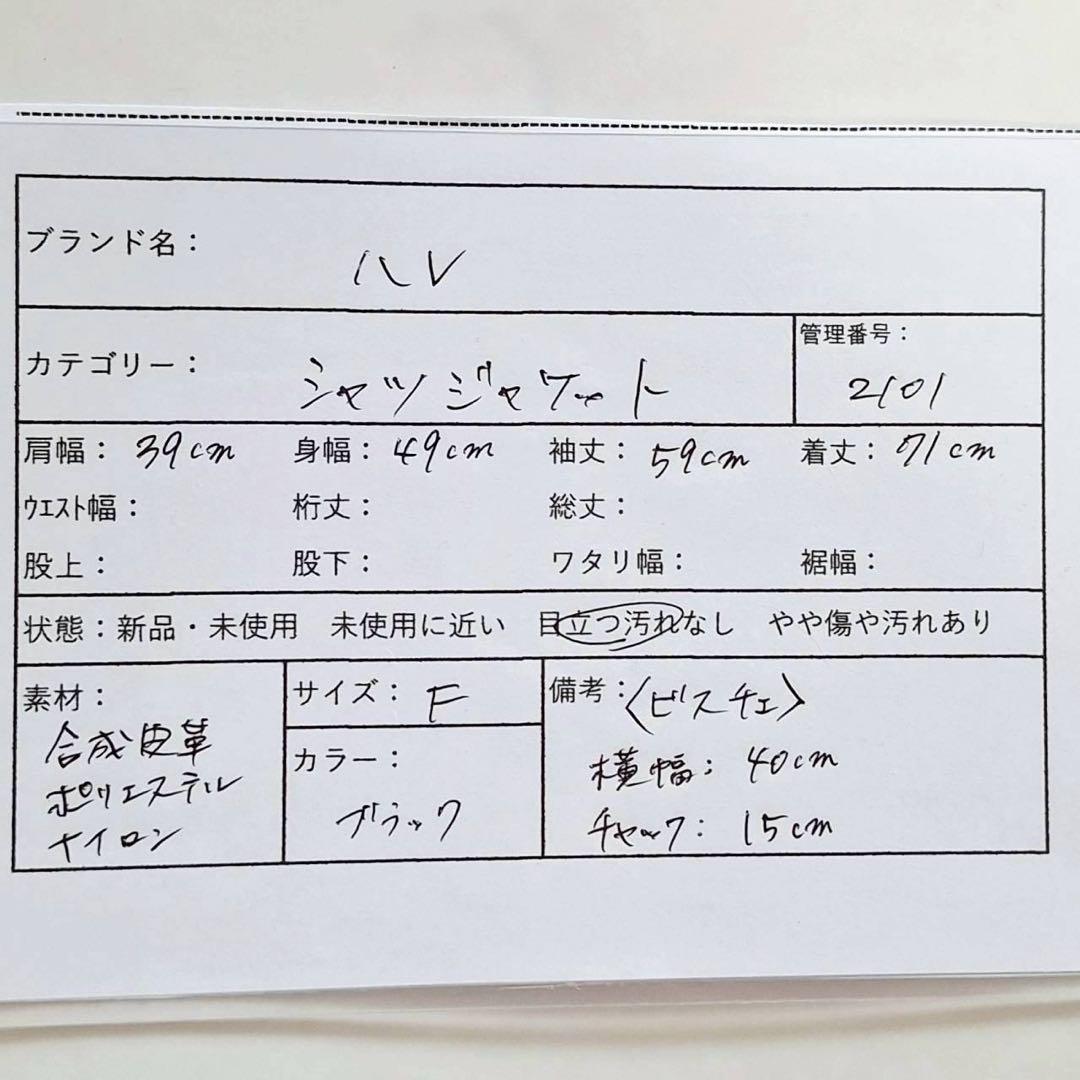 ブランド名： ハレ
カテゴリー： シャツジャケット
管理番号： 2101
肩幅： 39cm 身幅： 49cm 袖丈： 59cm 着丈： 71cm
ｳｴｽﾄ幅： 裄丈： 総丈：
股上： 股下： ワタリ幅： 裾幅：
状態：新品・未使用 未使用に近い 目立つ汚れなし やや傷や汚れあり
素材：
合成皮革
ポリエステル
ナイロン
サイズ： F
カラー：
ブラック
備考：〈ビスチェ〉
横幅： 40cm
チャック： 15cm